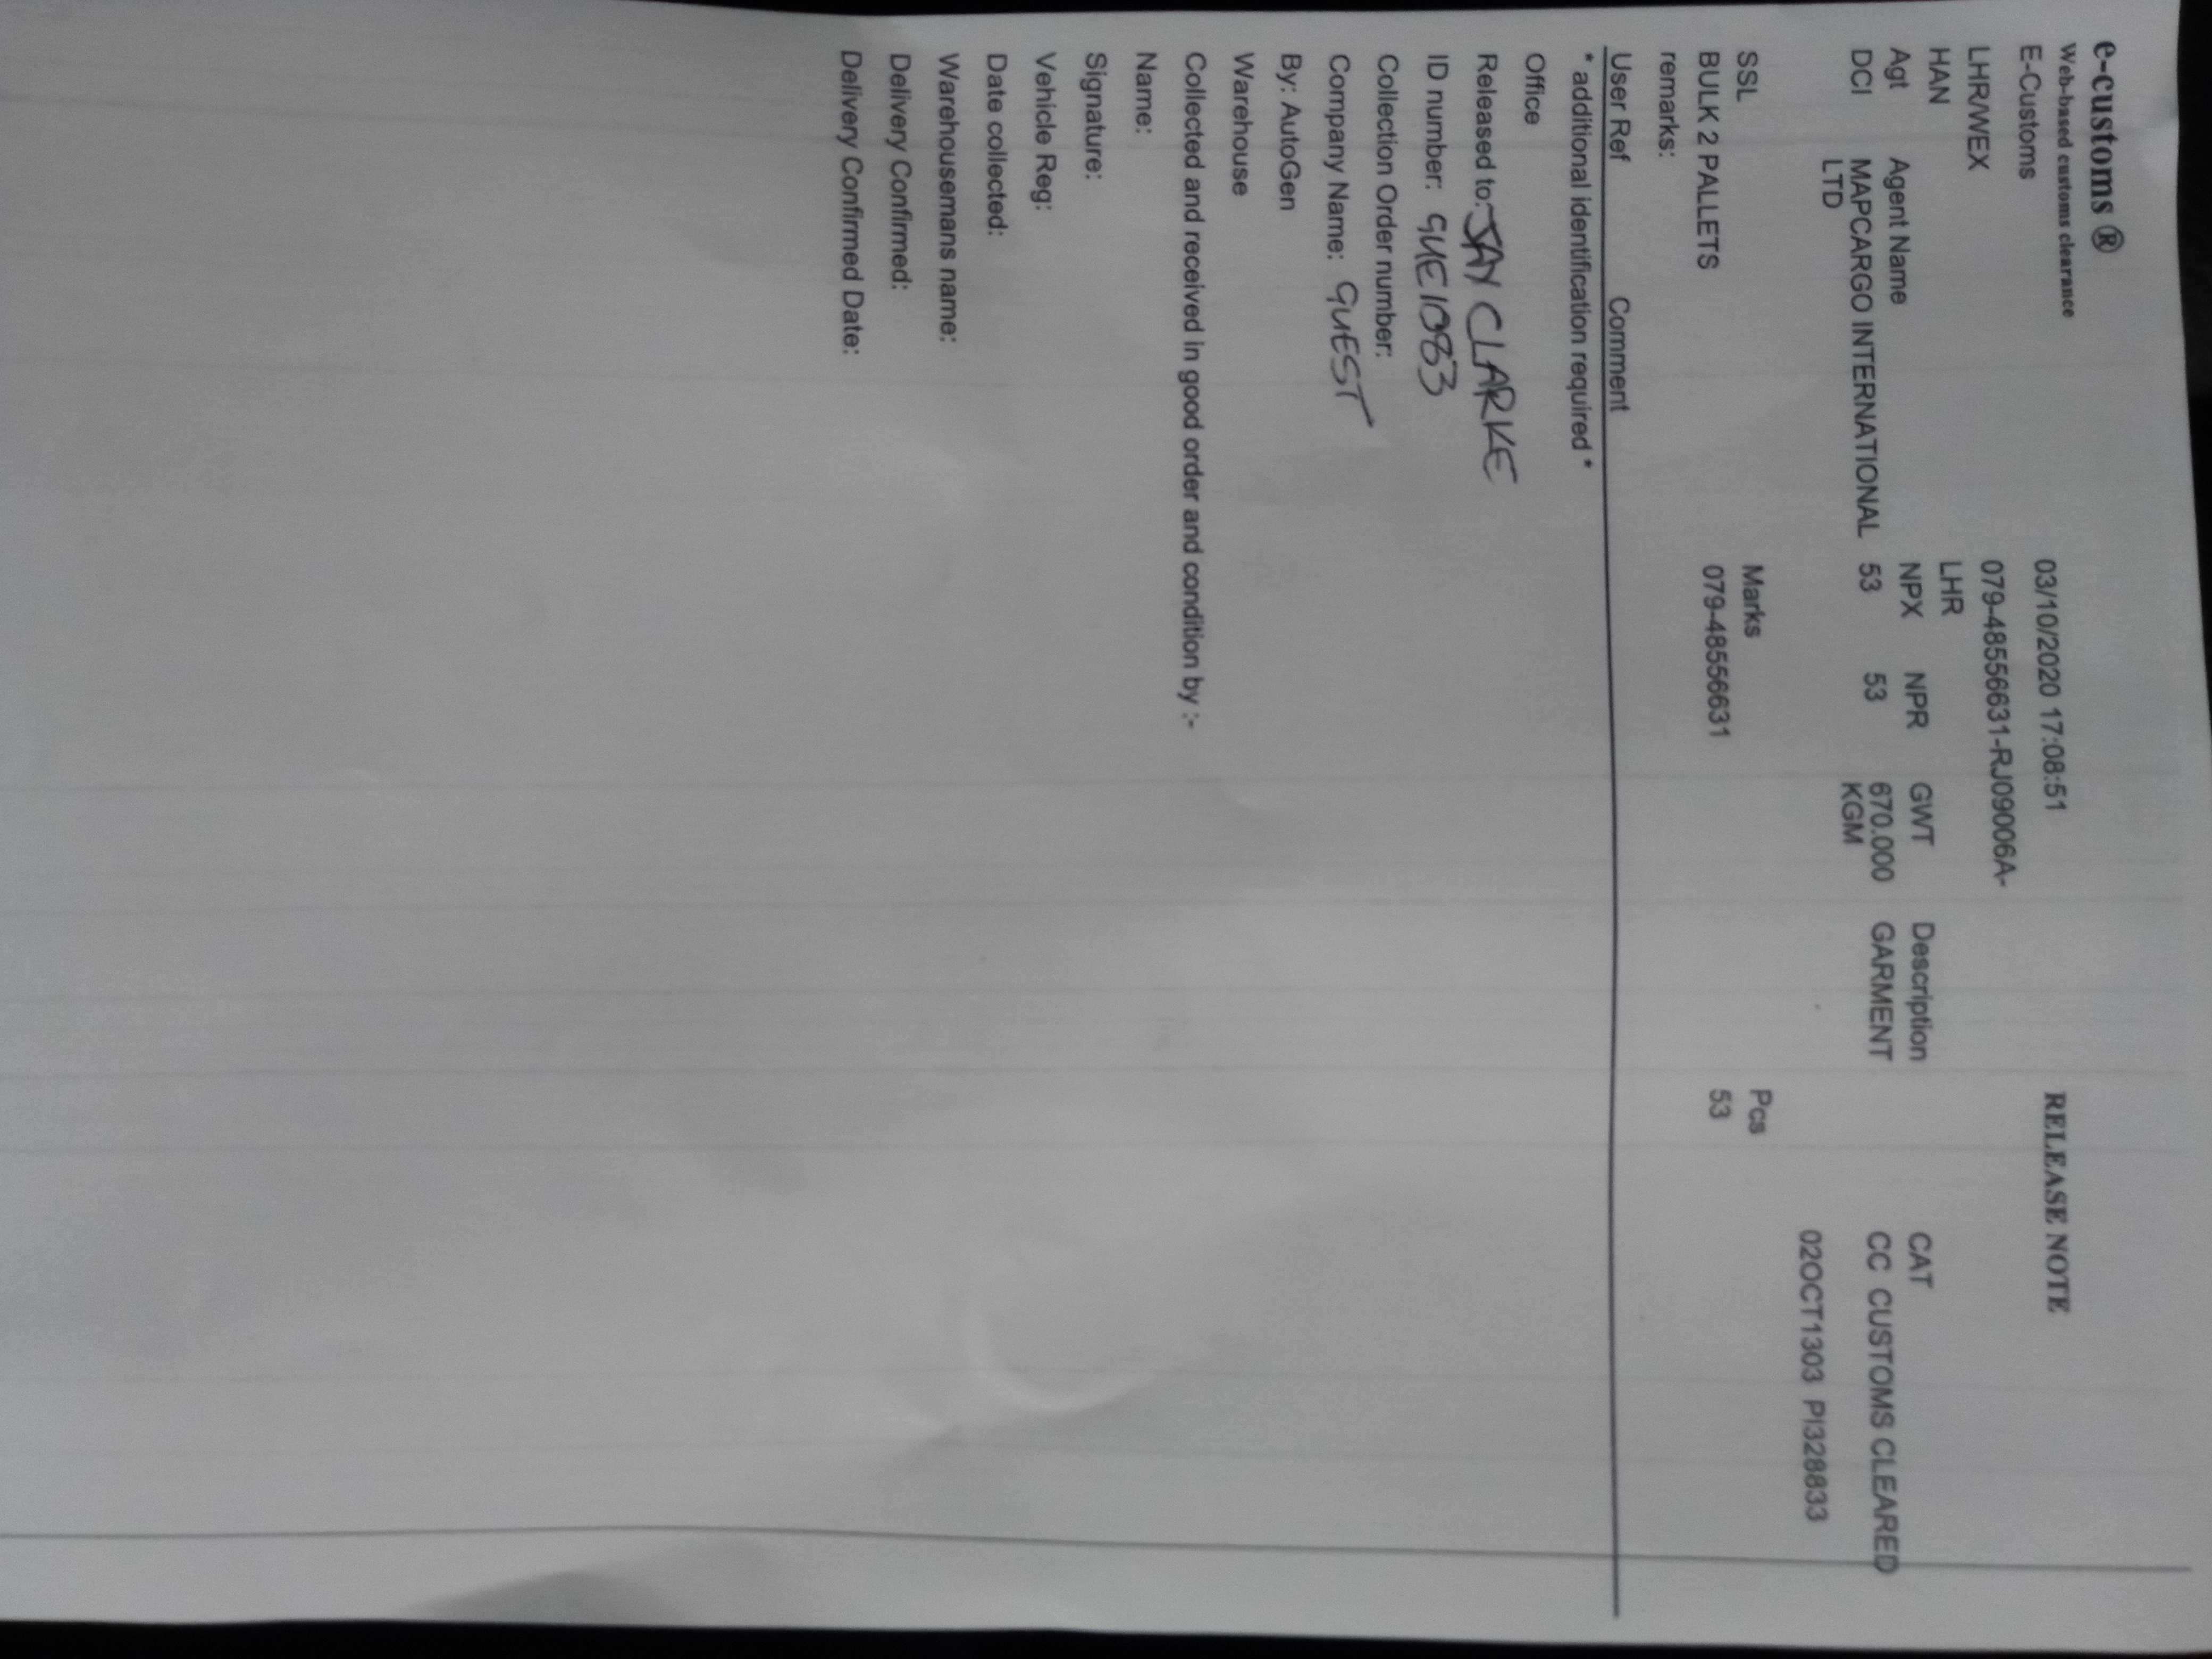 e-customs ®
Web-based customs clearance
E-Customs 03/10/2020 17:08:51 RELEASE NOTE
LHR/WEX 079-48556631-RJ09006A-
HAN LHR
Agt Agent Name NPX NPR GWT Description CAT
DCI MAPCARGO INTERNATIONAL 53 53 670.000 GARMENT CC CUSTOMS CLEARED
LTD KGM
02OCT1303 PI328833
SSL Marks Pcs
BULK 2 PALLETS 079-48556631 53
remarks:
User Ref Comment
* additional identification required *
Office
Released to: JAY CLARKE
ID number: GUE11083
Collection Order number:
Company Name: GUEST
By: AutoGen
Warehouse
Collected and received in good order and condition by :-
Name:
Signature:
Vehicle Reg:
Date collected:
Warehousemans name:
Delivery Confirmed:
Delivery Confirmed Date: